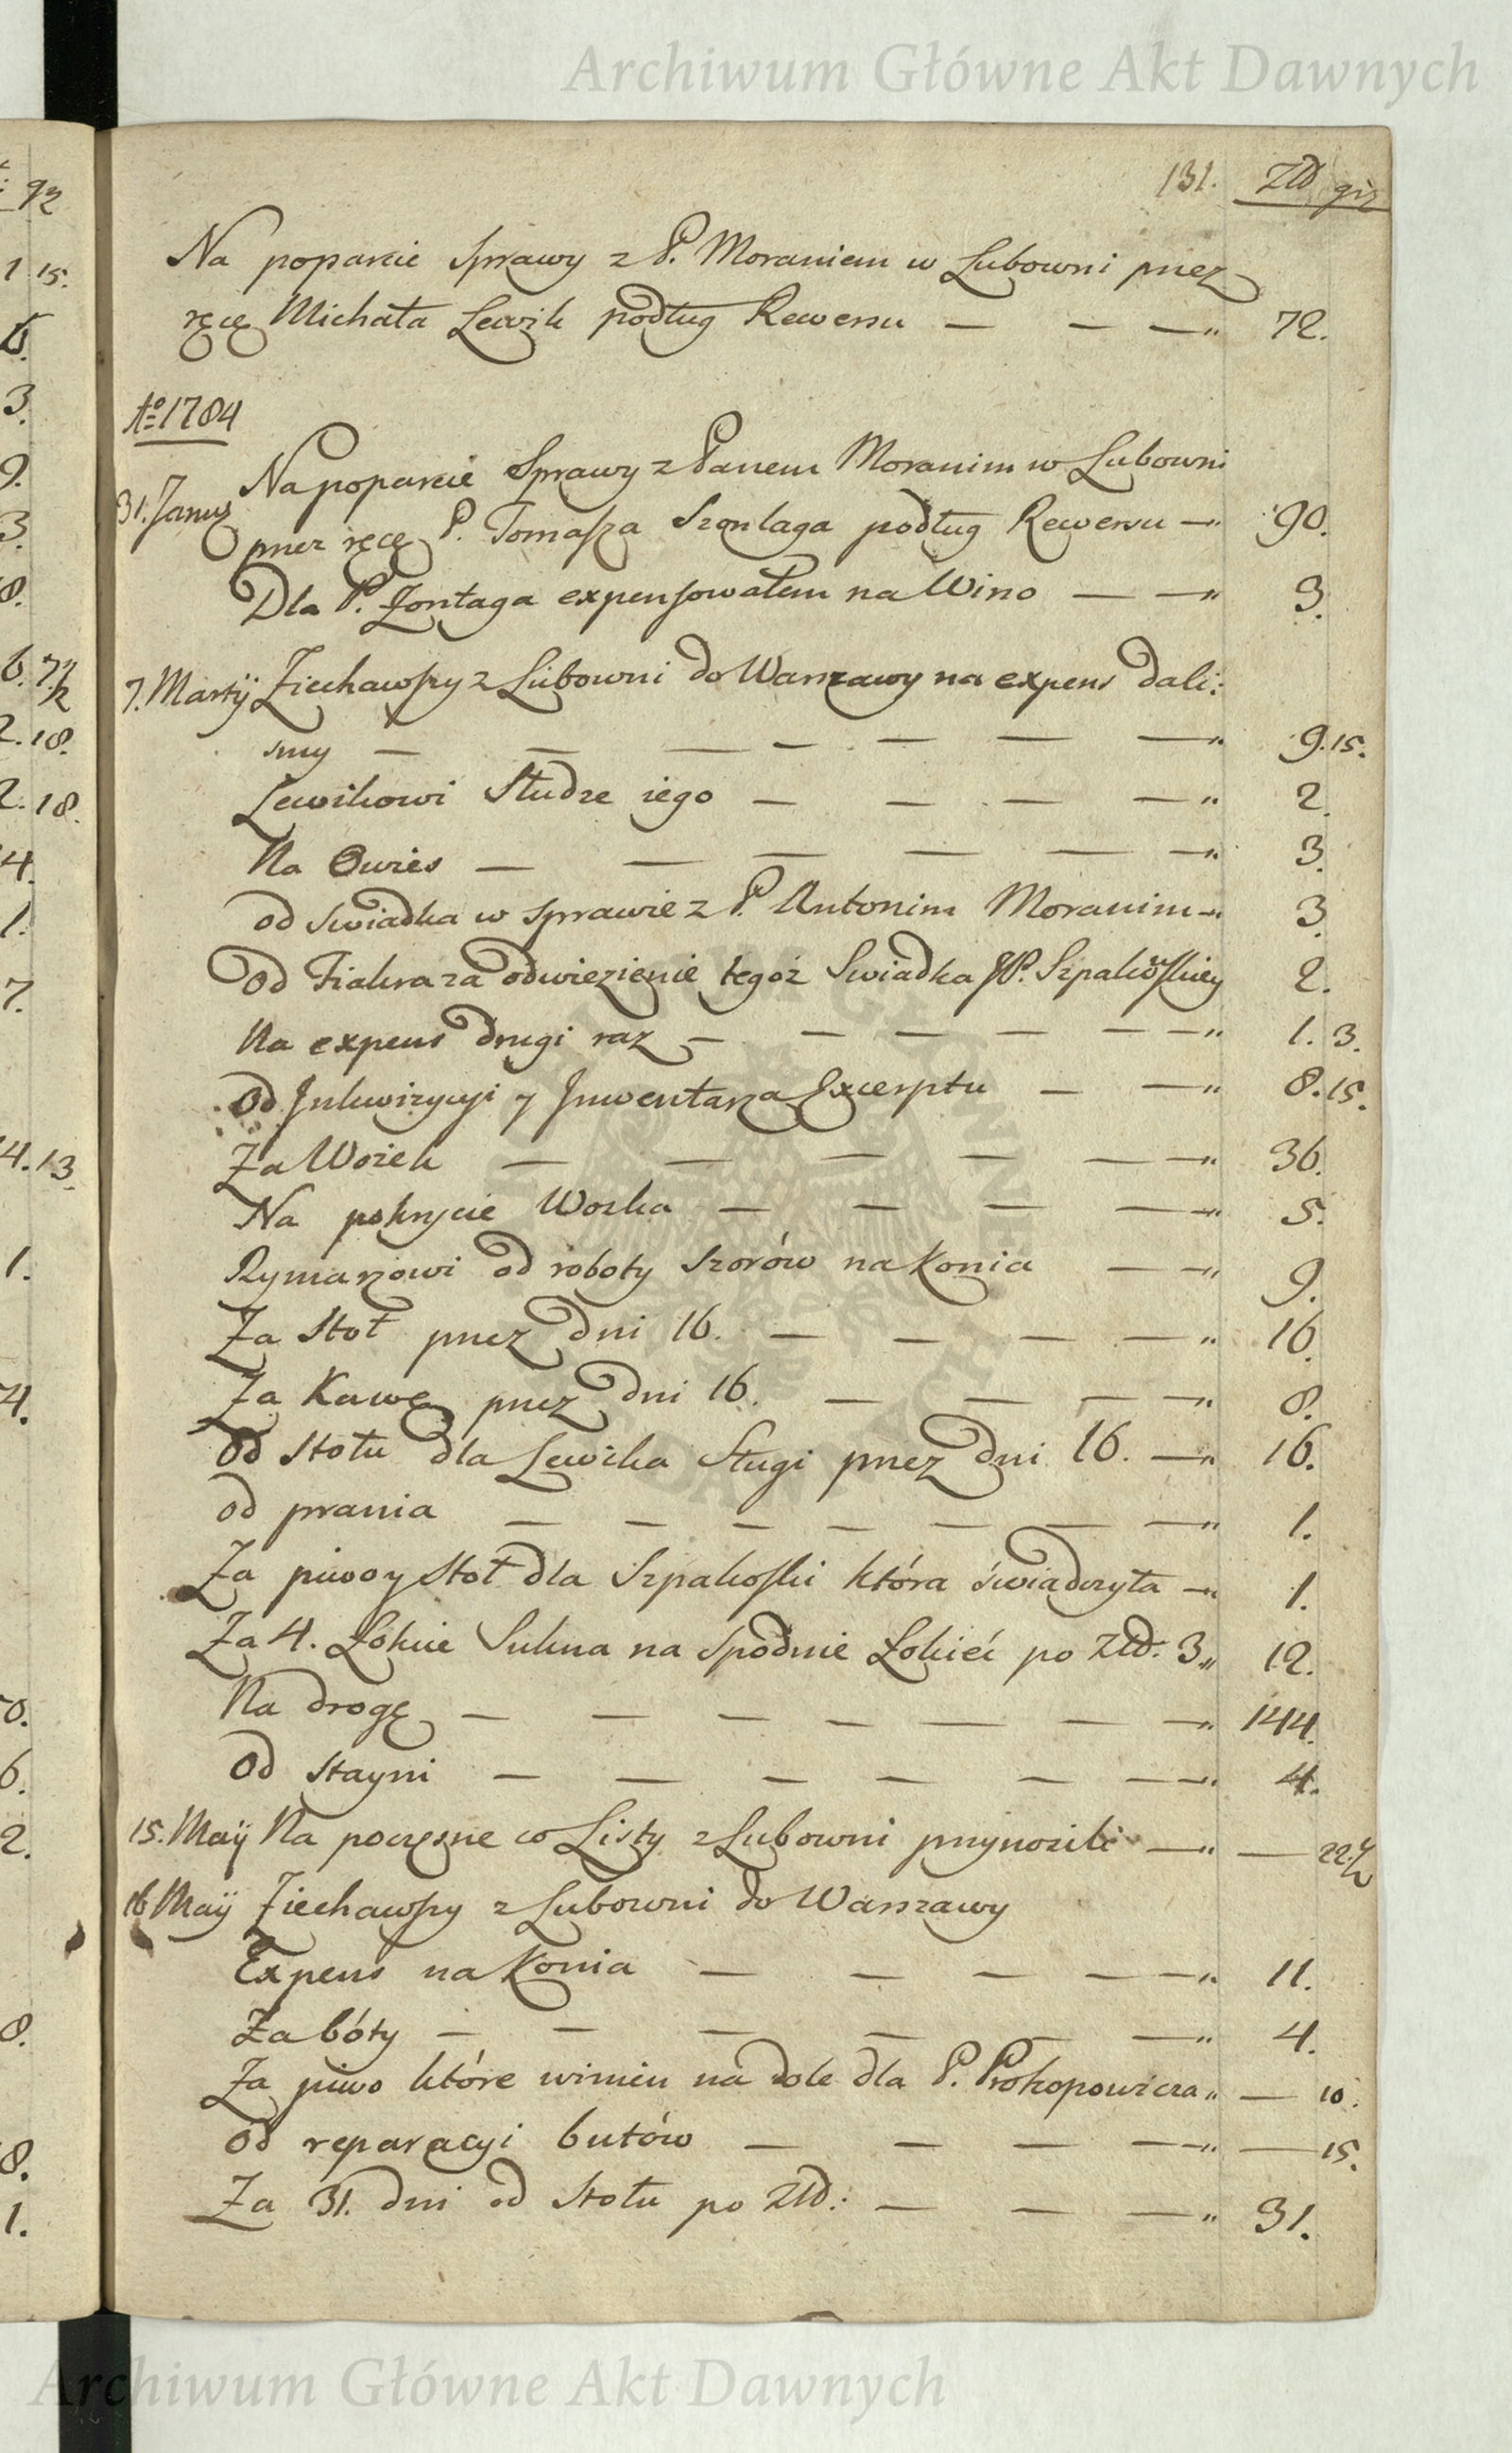 Archiwum Główne Akt Dawnych
131. Złł grz
Na poparcie Sprawy z P. Moraniem w Lubowni przez
ręcę Michała Lewik podług Rewersu — — — 72.
Aº 1784
31. Janu Na poparcie Sprawy z Panem Moranim w Lubowni
przez ręcę P. Tomasza Szonlaga podług Rewersu — 90.
Dla P. Zontaga expensowałem na Wino — — 3.
7. Martij Ziechawszy z Lubowni do Warszawy na expens dali:
smy — — — — — — — 9. 15.
Lewikowi Słudze iego — — — — 2.
Na Owies — — — — — — 3.
od Swiadka w Sprawie z P. Antonim Moranim — 3.
Od Fiakra za odwiezienie tegoż Swiadka JP. Szpakoskiey 2.
Na expens drugi raz — — — — — — 1. 3.
Od Inkwizycyi y Inwentarza Excerptu — — 8. 15.
Za Wozek — — — — — — 36.
Na pokrycie Wozka — — — — 5.
Rymarzowi od roboty szorów na Konia — — 9.
Za Stoł przez dni 16. — — — — 16.
Za Kawę przez dni 16. — — — — 8.
Od Stołu dla Lewika Sługi przez dni 16. — 16.
od prania — — — — — — — 1.
Za piwo y Stoł dla Szpakoski która świadczyła — 1.
Za 4. Łokcie Sukna na Spodnie Łokieć po Złł. 3 12.
Na drogę — — — — — — — 144.
Od Stayni — — — — — — 4.
15. Maij Na poczesne co Listy z Lubowni przynosili — — 22½
16 Maij Ziechawszy z Lubowni do Warszawy
Expens na Konia — — — — — 11.
Za bóty — — — — — — 4.
Za piwo które winien na dole dla P. Prokopowicza — 10.
Od reparacyi butów — — — — — 15.
Za 31. dni od Stołu po Złł: — — — 31.
Archiwum Główne Akt Dawnych